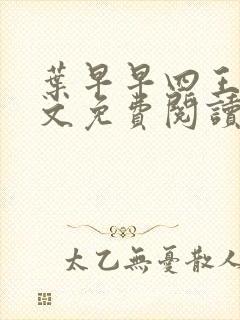 葉早早四王
文免費閱讀
太乙無憂散人